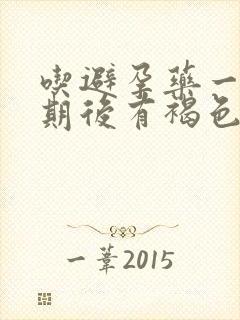 喫避孕藥一
期後有褐色
一葦2015